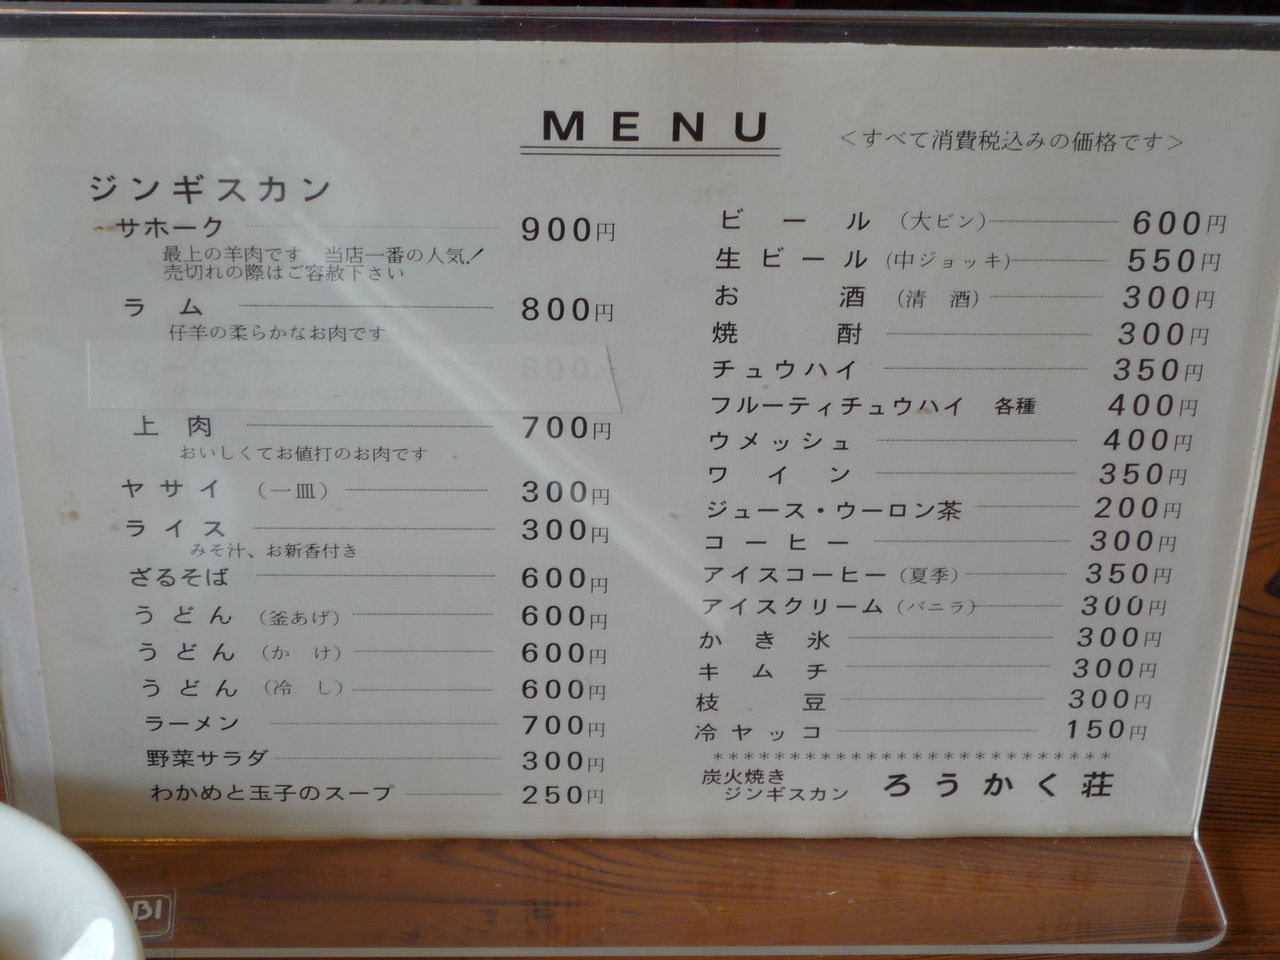 MENU
＜すべて消費税込みの価格です＞
ジンギスカン
サホーク 900円
最上の羊肉です 当店一番の人気！
売切れの際はご容赦下さい
ラム 800円
仔羊の柔らかなお肉です
ロース 800円
上肉 700円
おいしくてお値打のお肉です
ヤサイ （一皿） 300円
ライス 300円
みそ汁、お新香付き
ざるそば 600円
うどん （釜あげ） 600円
うどん （かけ） 600円
うどん （冷し） 600円
ラーメン 700円
野菜サラダ 300円
わかめと玉子のスープ 250円
ビール （大ビン） 600円
生ビール （中ジョッキ） 550円
お酒 （清酒） 300円
焼酎 300円
チュウハイ 350円
フルーティチュウハイ 各種 400円
ウメッシュ 400円
ワイン 350円
ジュース・ウーロン茶 200円
コーヒー 300円
アイスコーヒー （夏季） 350円
アイスクリーム （バニラ） 300円
かき氷 300円
キムチ 300円
枝豆 300円
冷ヤッコ 150円
************************
炭火焼き
ジンギスカン ろうかく荘